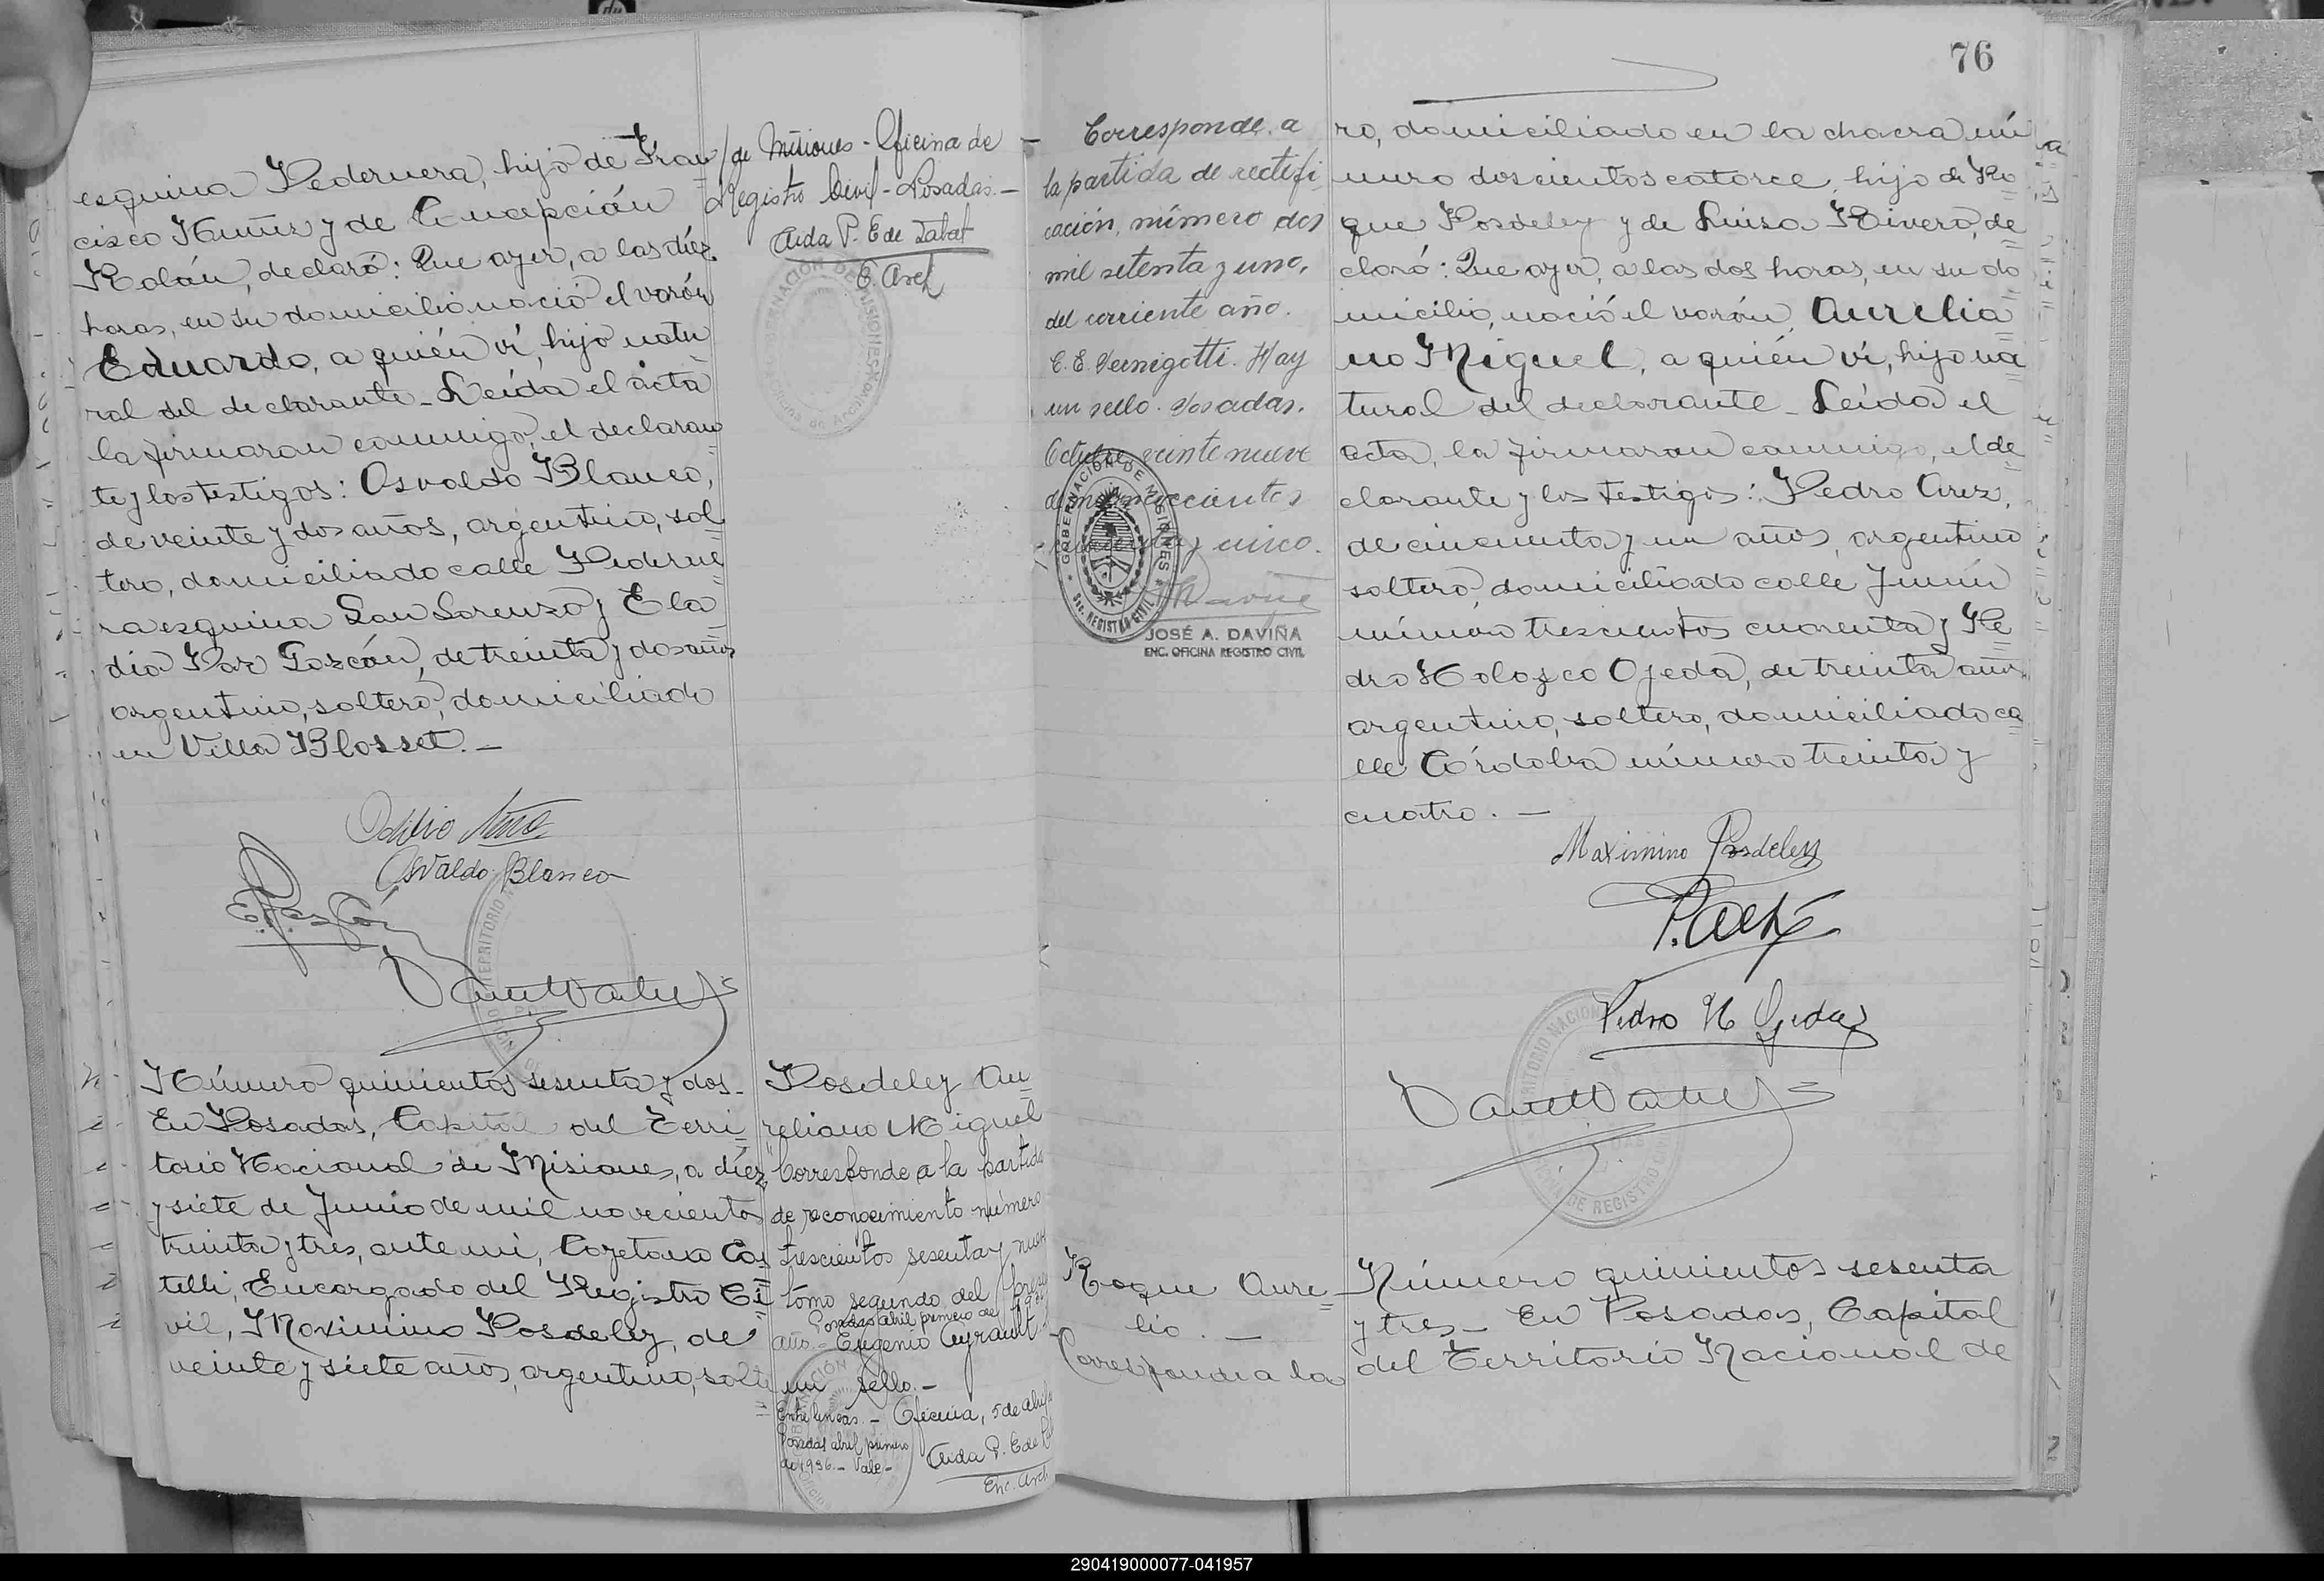 esquina Pedernera, hijo de Fran
cisco Nuñez y de Concepción
Rolán, declaró: Que ayer, a las diez
horas, en su domicilio nació el varón
Eduardo, a quién ví, hijo natu
ral del declarante. Leída el acta
la firmaron conmigo, el declaran
te y los testigos: Osvaldo Blanco,
de veinte y dos años, argentino, sol
tero, domiciliado calle Pederne
ra esquina San Lorenzo y Ela
dio Paz Gozcón, de treinta y dos años
argentino, soltero, domiciliado
en Villa Blosset. —
Osvaldo Blanco
de Misiones - Oficina de
Registro Civil - Posadas. —
Aida P. E de Labat
E. Arch
Número quinientos sesenta y dos -
En Posadas, Capital del Terri
torio Nacional de Misiones, a diez
y siete de Junio de mil novecientos
treinta y tres, ante mí, Cayetano Cas
telli, Encargado del Registro Ci
vil, Maximino Posdeley, de
veinte y siete años, argentino, solte
Posdeley Au
reliano Miguel
"Corresponde a la partida
de reconocimiento número
trescientos sesenta y nueve
tomo segundo del
Posadas abril primero de
año. - Eugenio Ayrault
un sello. —
Entre líneas. - Oficina, 5 de abril
Posadas abril primero
de 1936. - Vale -
Aida P. E de
Enc. Arch.
76
Corresponde a
la partida de rectifi
cación, número dos
mil setenta y uno,
del corriente año.
C. E. Vernegotti. Hay
un sello. Posadas.
Octubre veinte nueve
de mil novecientos
cuarenta y cinco.
GOBERNACIÓN DE MISIONES
Sec. REGISTRO CIVIL
JOSÉ A. DAVIÑA
ENC. OFICINA REGISTRO CIVIL
ro, domiciliado en la chacra nú
mero doscientos catorce, hijo de Ro
que Posdeley y de Luisa Rivero, de
claró: Que ayer, a las dos horas, en su do
micilio, nació el varón, Aurelia
no Miguel, a quién ví, hijo na
tural del declarante. Leída el
acta, la firmaron conmigo, el de
clarante y los testigos: Pedro Arez,
de cincuenta y un años, argentino
soltero, domiciliado calle Junín
número trescientos cuarenta y Pe
dro Nolazco Ojeda, de treinta años
argentino, soltero, domiciliado ca
lle Córdoba número treinta y
cuatro. —
Maximino Posdeley
Pedro N Ojeda
Roque Aure
lio. —
Corresponde a la
Número quinientos sesenta
y tres - En Posadas, Capital
del Territorio Nacional de
290419000077-041957